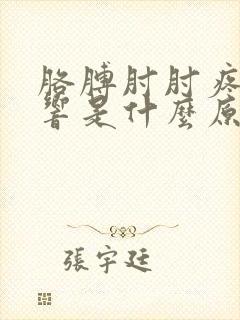 胳膊肘肘疼
響是什麼原
張宇廷